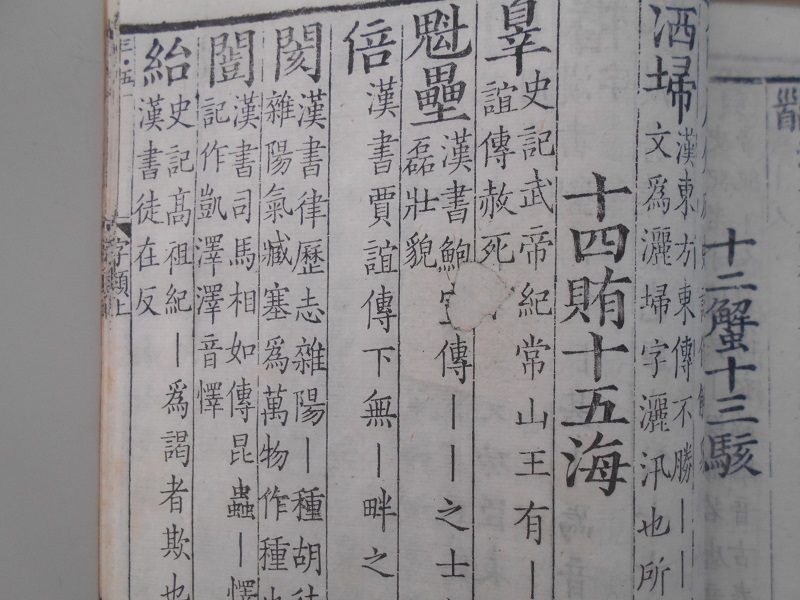 十二蟹十三駭
洒埽
漢東方東傳不勝｜｜
文爲灑埽字灑汛也所
十四賄十五海
辠
史記武帝紀常山王有｜
誼傳赦死
魁壘
漢書鮑傳｜｜之士
磊壯貌
倍
漢書賈誼傳下無｜畔之
閡
漢書律歷志雜陽｜種胡
雜陽氣臧塞爲萬物作種
闓
漢書司馬相如傳昆蟲｜懌
記作凱澤澤音懌
紿
史記髙祖紀｜爲謁者欺也
漢書徒在反
三・五
字類上